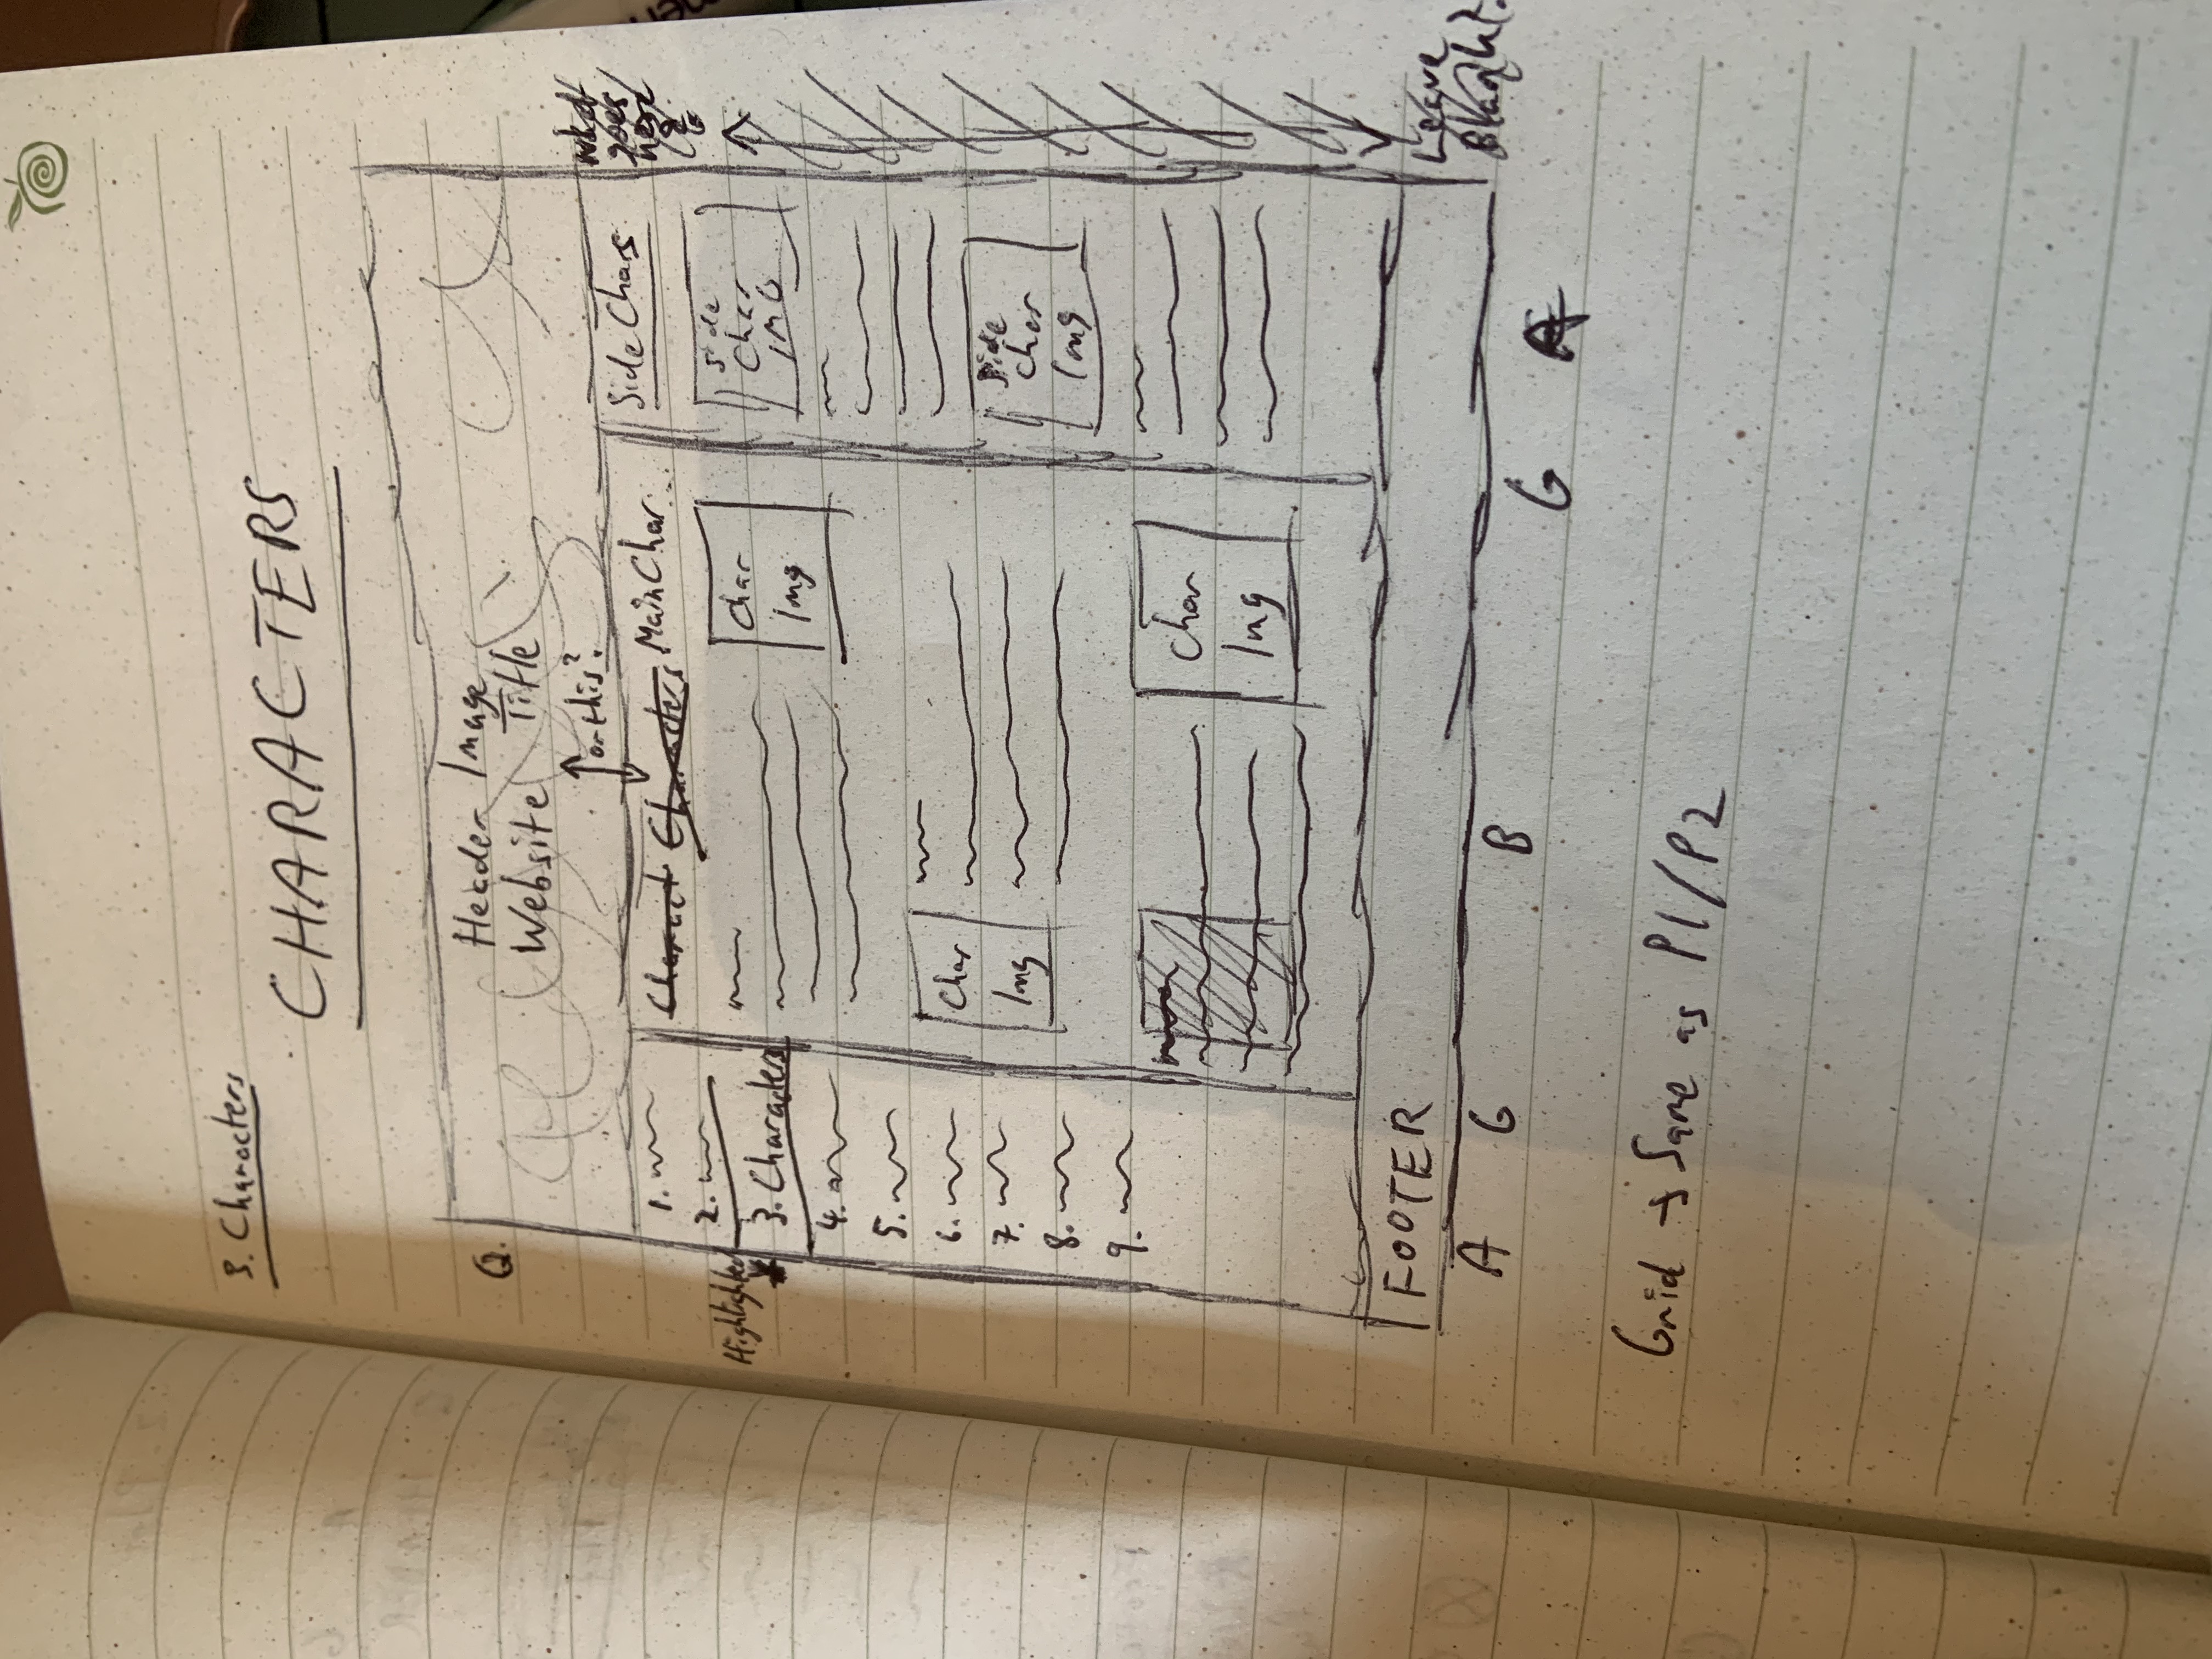 3. Characters
CHARACTERS
Q.
Header Image
Website Title
or this?
1.
2.
Highlighted
3. Characters
4.
5.
6.
7.
8.
9.
Charact Characters Main Char
Char
Img
Char
Img
Char
Img
Side Chars
Side
Char
IMG
Side
Char
Img
what
goes
here
?
Leave
Blank?
FOOTER
A G B G A
Grid → Same as P1/P2